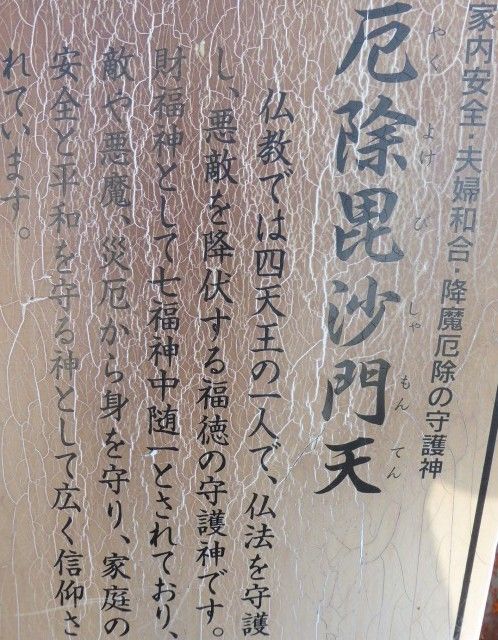 家内安全・夫婦和合・降魔厄除の守護神
厄除毘沙門天
やくよけびしゃもんてん
仏教では四天王の一人で、仏法を守護
し、悪敵を降伏する福徳の守護神です。
財福神として七福神中随一とされており、
敵や悪魔、災厄から身を守り、家庭の
安全と平和を守る神として広く信仰さ
れています。